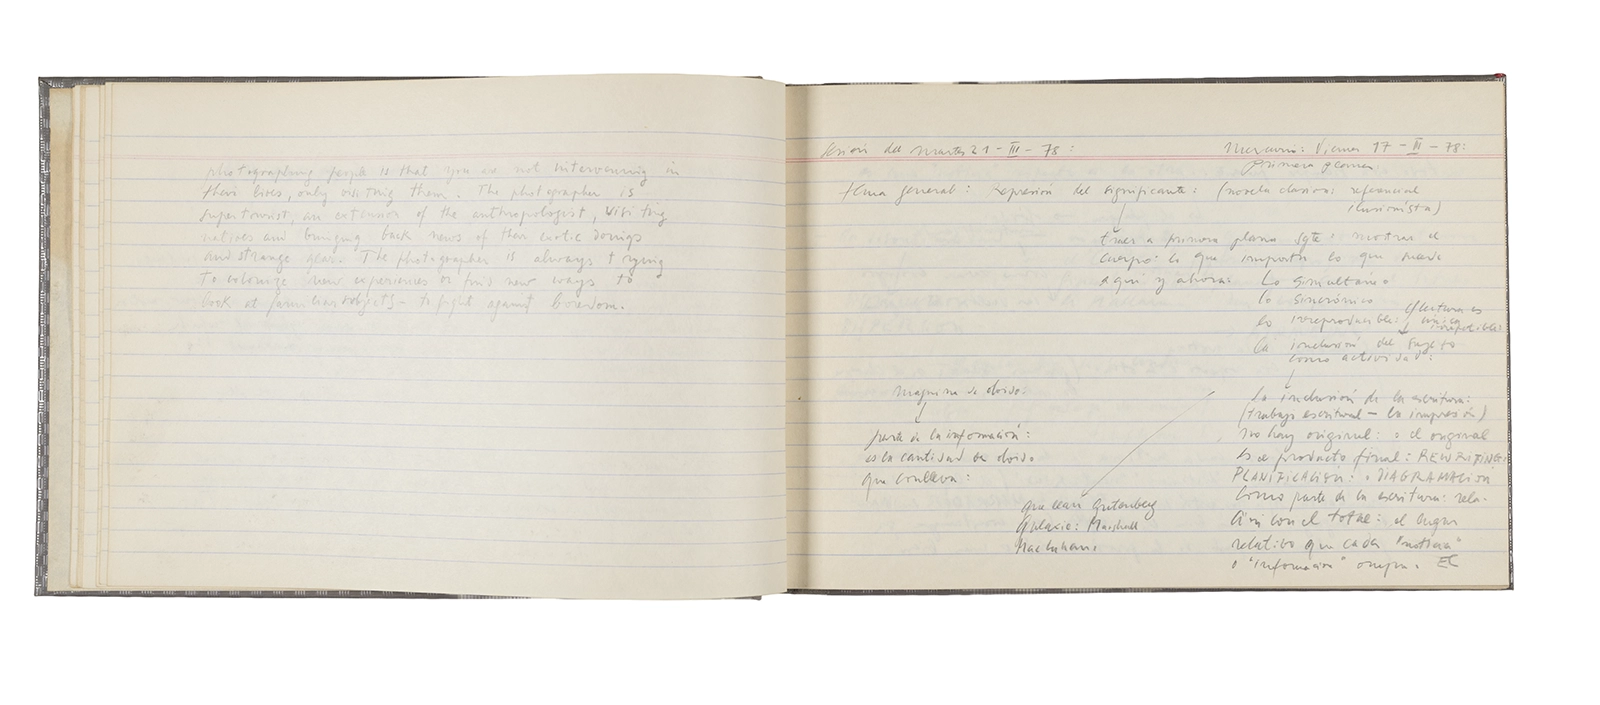 photographing people is that you are not intervening in
their lives, only visiting them. The photographer is
supertourist, an extension of the anthropologist, visiting
natives and bringing back news of their exotic doings
and strange gear. The photographer is always trying
to colonize new experiences or find new ways to
look at familiar subjects - to fight against boredom.
Sesión del martes 21 - III - 78:
Mercurio: Viernes 17 - III - 78:
primera
tema general: Represión del significante: (novela clasica: referencial
ilusionista)
traer a primera plana Sgte: mostrar el
cuerpo: lo que importa lo que sucede
aquí y ahora: Lo simultáneo
lo sincrónico
lo irreproducible:
la inclusión del Sujeto
como actividad:
maquina de
parte de la información:
es la cantidad de
que conlleva:
que lean Gutenberg
Galaxia: Marshall
MacLuhan.
La inclusión de la escritura:
(trabajo escritural - la impresión)
no hay original: o el original
es el producto final: REWRITING:
PLANIFICACIÓN: DIAGRAMACIÓN
Como parte de la escritura: rela-
ción con el total: el lugar
relativo que cada "noticia"
o "información" ocupa. EC